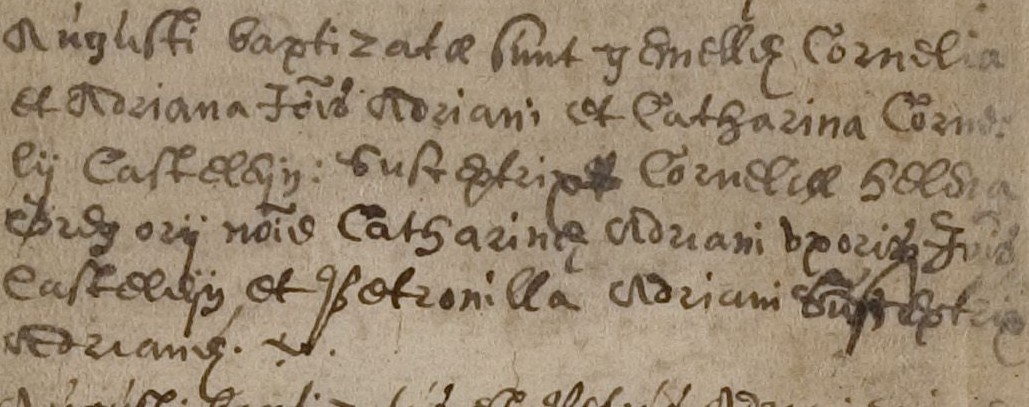 Augusti baptizatæ sunt gemellę Cornelia
et Adriana Jōis Adriani et Catharina Corne
lij Casteleijn: Susceptrix Corneliæ Helena
Gregorij nōie Catharinę Adriani uxoris Jōis
Casteleijn et Petronilla Adriani Susceptrix
Adrianę.
Augusti